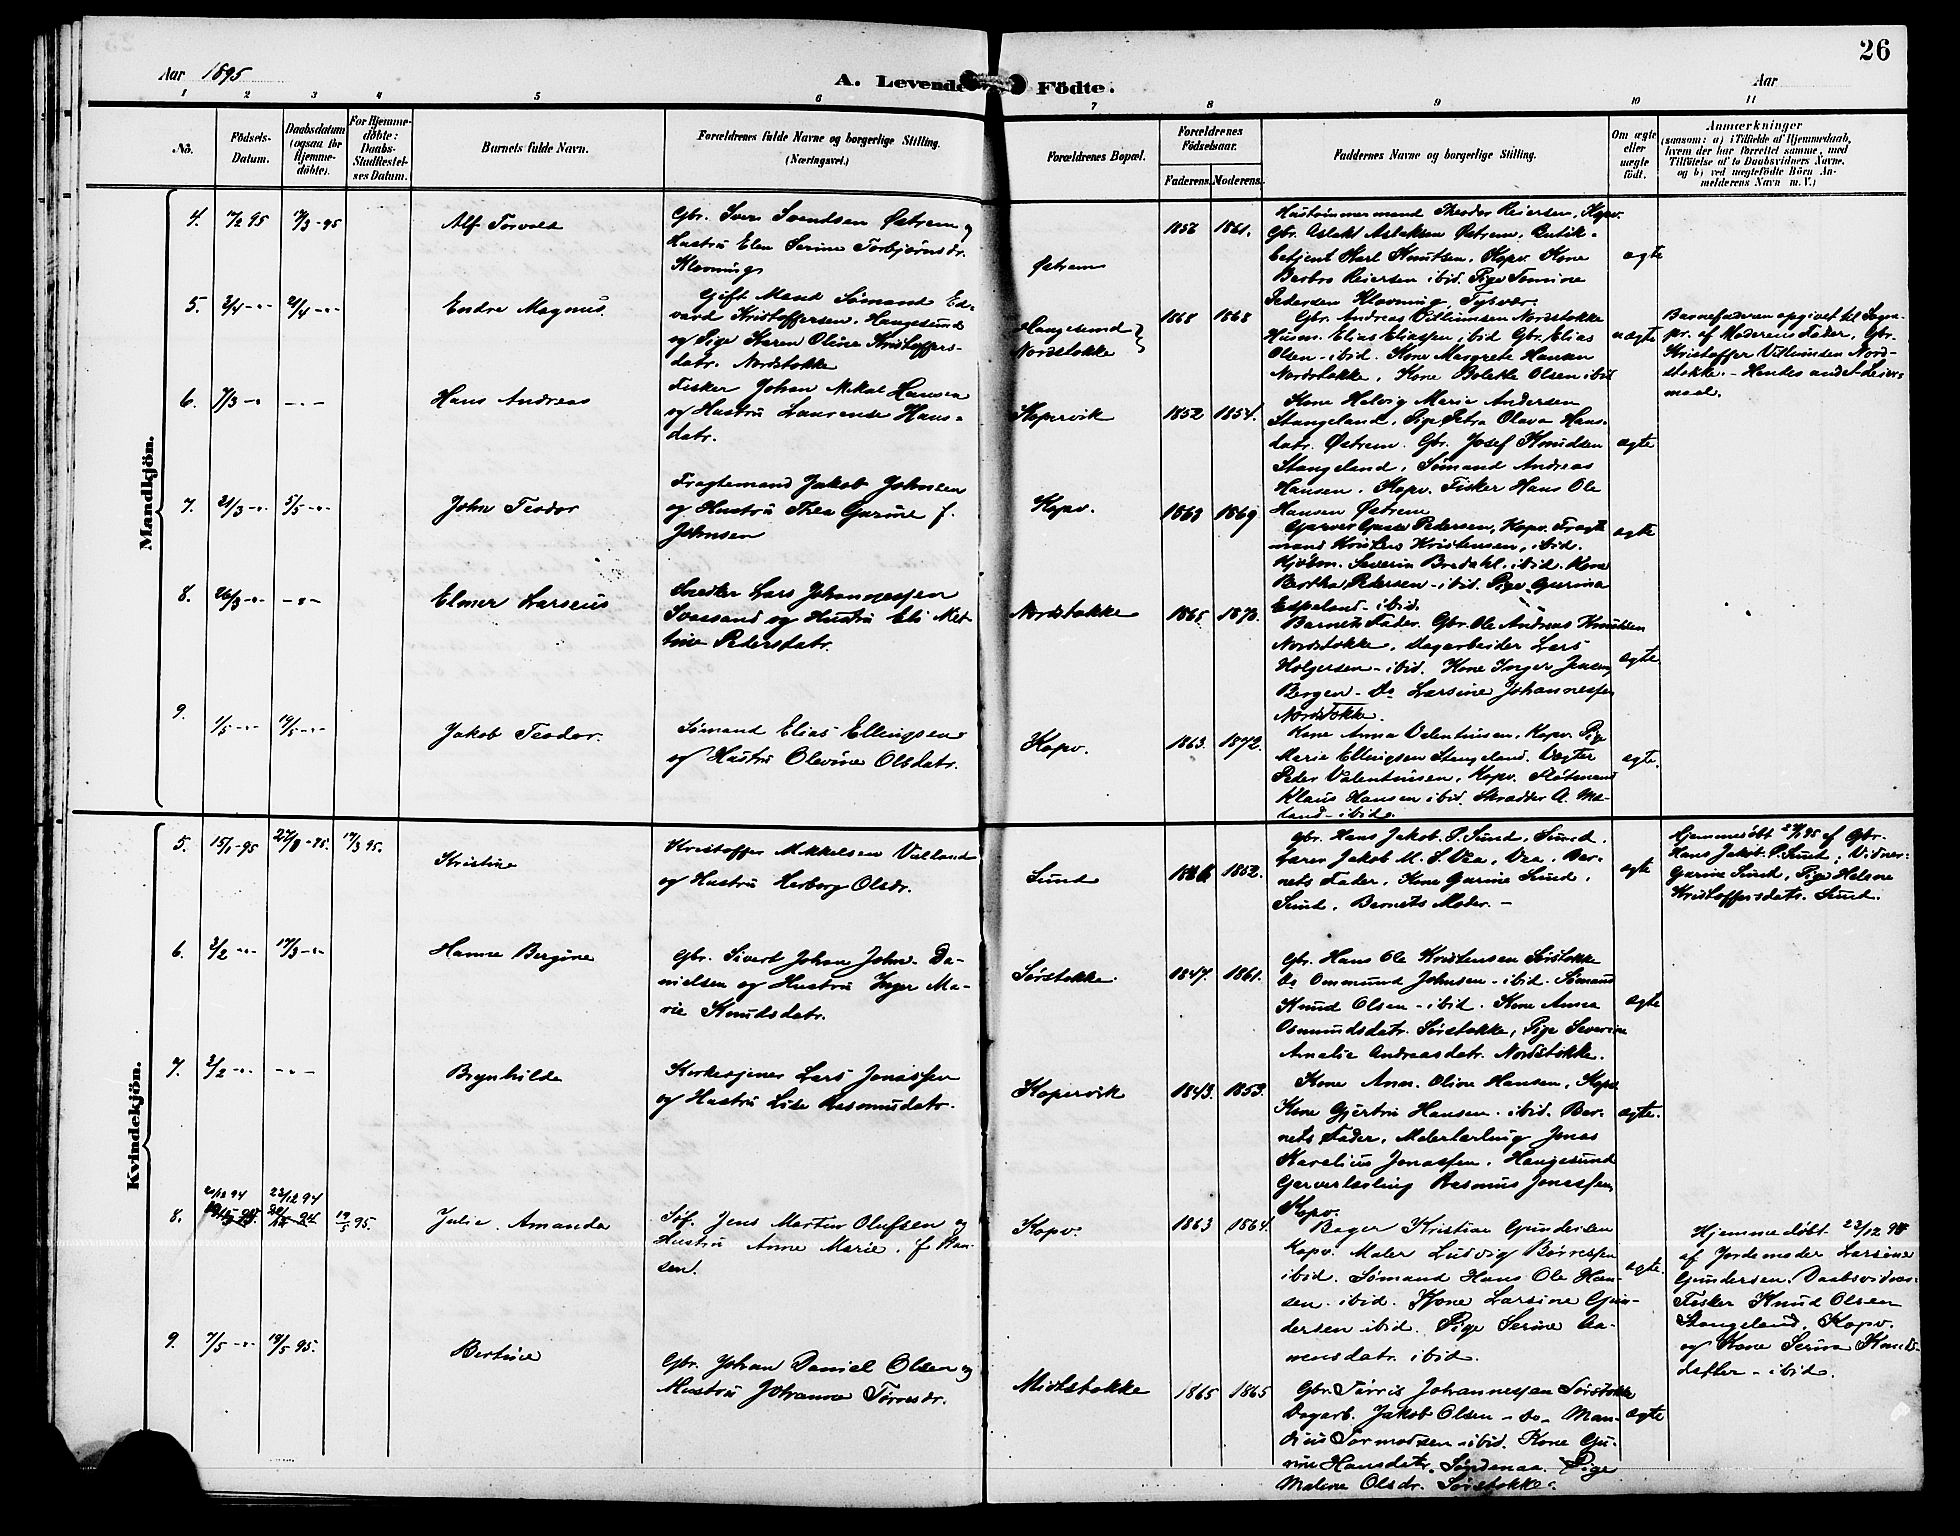 26
Aar 1895
A. Levende Födte.
Aar
1 2 3 4 5 6 7 8 9 10 11
No.
Födsels-Datum.
Daabsdatum (ogsaa for Hjemme-døbte).
For Hjemme-døbte: Daabs-Stadfæstel-ses Datum.
Barnets fulde Navn.
Forældrenes fulde Navne og borgerlige Stilling.
(Næringsvei.)
Forældrenes Bopæl.
Forældrenes Födselsaar.
Faderens. Moderens.
Faddernes Navne og borgerlige Stilling.
Om ægte eller uægte født.
Anmærkninger
(saasom: a) i Tilfælde af Hjemmedaab,
hvem der har forrettet samme, med
Tilföielse af to Daabsvidners Navne,
og b) ved uægtefødte Börn An-
melderens Navn m. V.)
Mandkjön.
4.
Alf Torvald
Gbr. Sven Svendsen Østrem og
Hustru Elen Serine Torbjørnsdr.
Klovning
Østrem
1861.
Hustømmermand Theodor Reiersen, Kopv.
Gbr. Aslakt Aslaksen Østrem, Butik-
betjent Karl Knutsen, Kopv. Kone
Berbro Reiersen ibid. Pige Tomine
Pedersen Klovning, Tysvær.
ægte
5. 2/4 -"- 21/4 -"-
Endre Magnus
Gift Mand Sømand Ed-
vard Kristoffersen, Haugesund
og Pige Karen Oline Kristoffers-
datr. Nordstokke
Haugesund
Nordstokke
1868 1868
Gbr. Andreas Villumsen Nordstokke
Husm. Elias Eliassen, ibid Gbr. Elias
Olsen - ibid. Kone Margrete Hansen
Nordstokke, Kone Bolette Olsen ibid
uægte
Barnefaderen opgivet til Sogn-
pr. af Moderens Fader, Gbr.
Kristoffer Villumsen Nord-
stokke. - Hendes andet Leier-
maal.
6. 7/3 -"- -"-
Hans Andreas
Fisker Johan Mikal Hansen
og Hustru Laurense Hans-
datr.
Kopervik
1852 1854.
Kone Helvig Marie Andersen
Stangeland, Pige Petra Olava Hans-
datr. Østrem. Gbr. Josef Knudsen
Stangeland, Sømand Andreas
Hansen, Kopv. Fisker Hans Ole
Hansen Østrem
ægte
7. 21/3 -"- 5/5 -"-
John Teodor
Fragtemand Jakob Johnsen
og Hustru Thea Gurine f.
Johnsen
Kopv.
1869
Garver Pedersen, Kopv. Fragte
mand Kristensen, ibid.
Kjøbm. Severin Bredahl, ibid. Kone
Bertha Pedersen - ibid. Pige Gurina
Espeland - ibid.
ægte
8. 26/3 -"- -"-
Elmer Larseus
Snedker Lars Johannessen
Svassand og Hustru Eli Met-
tine Pedersdatr.
Nordstokke
1865 1873.
Barnets Fader. Gbr. Ole Andreas Knudsen
Nordstokke, Dagarbeider Lars
Holgersen - ibid. Kone Inger Jensen
Bergen - Do Larsine Johannessen
Nordstokke.
ægte
9. 1/5 -"- 19/5 -"-
Jakob Teodor.
Sømand Elias Ellingsen
og Hustru Olevine Olsdatr.
Kopv.
1863. 1872.
Kone Anna Valentinsen, Kopv. Pige
Marie Ellingsen Stangeland. Vægter
Peder Valentinsen, Kopv.
Klaus Hansen ibid. Skrædder A. Mæ-
land - ibid.
ægte.
Kvindekjön.
5. 15/1-95 17/3 95.
Kristine
Kristoffer Mikkelsen Valland
og Hustru Herborg Olsdr.
Sund
1852.
Gbr. Hans Jakob P. Sund, Sund.
Lærer Jakob M. S. Vea, Vea. Bar-
nets Fader, Kone Gurine Sund,
Sund, Barnets Moder. -
ægte
Hjemmedøbt af Gbr.
Hans Jakob P. Sund; Vidner:
Gurine Sund, Pige Helene
Kristoffersdatr. Sund.
6. 3/2 -"- 17/3 -"-
Hanna Bergine
Gbr. Sivert Johan John. Da-
nielsen og Hustru Inger Ma-
rie Knudsdatr.
Sørstokke
1847. 1861.
Gbr. Hans Ole Kristensen Sørstokke
Do Ommund Johnsen - ibid. Sømand
Knud Olsen - ibid. Kone Anna
Osmundsdatr. Sørstokke, Pige Severine
Amalie Andreasdatr. Nordstokke.
ægte
7. 2/2 -"- -"-
Brynhilde
Kirkesjener Lars Jonassen
og Hustru Lise Rasmusdatr.
Kopervik
1843. 1853.
Kone Ann. Oline Hansen, Kopv
Kone Gjertru Hansen - ibid. Bar-
nets Fader, Malerlærling Jonas
Karelius Jonassen, Haugesund
Garverlærling Rasmus Jonassen,
Kopv.
ægte.
8. 23/12 94 19/5 95.
Julie Amanda
Søf. Jens Martin Olufsen og
Hustru Anne Marie, f. Han-
sen.
Kopv.
1863 1864.
Bager Kristian Gundersen
Kopv. Maler Ludvig Børresen
ibid. Sømand Hans Ole Han-
sen - ibid. Kone Larsine Gun-
dersen ibid. Pige Serine Aa-
mensdatr. ibid.
ægte.
Hjemmedøbt 23/12 94
af Jordemoder Larsine
Gundersen. Daabsvidner:
Fisker Knud Olsen
Stangeland, Kopv.
og Kone Serina Knuds-
datter - ibid.
9. 7/5 -"- 19/5 95.
Bertine
Gbr. Johan Daniel Olsen og
Hustru Johanna Tørresdr.
Midtstokke
1865 1865
Gbr. Tørris Johannessen Sørstokke
Dagarb. Jakob Olsen - do - Man-
dius Tormodsen - ibid. Kone Gu-
rine Hansdatr. Søndenaa. Pige
Maline Olsdr. Sørstokke.
ægte